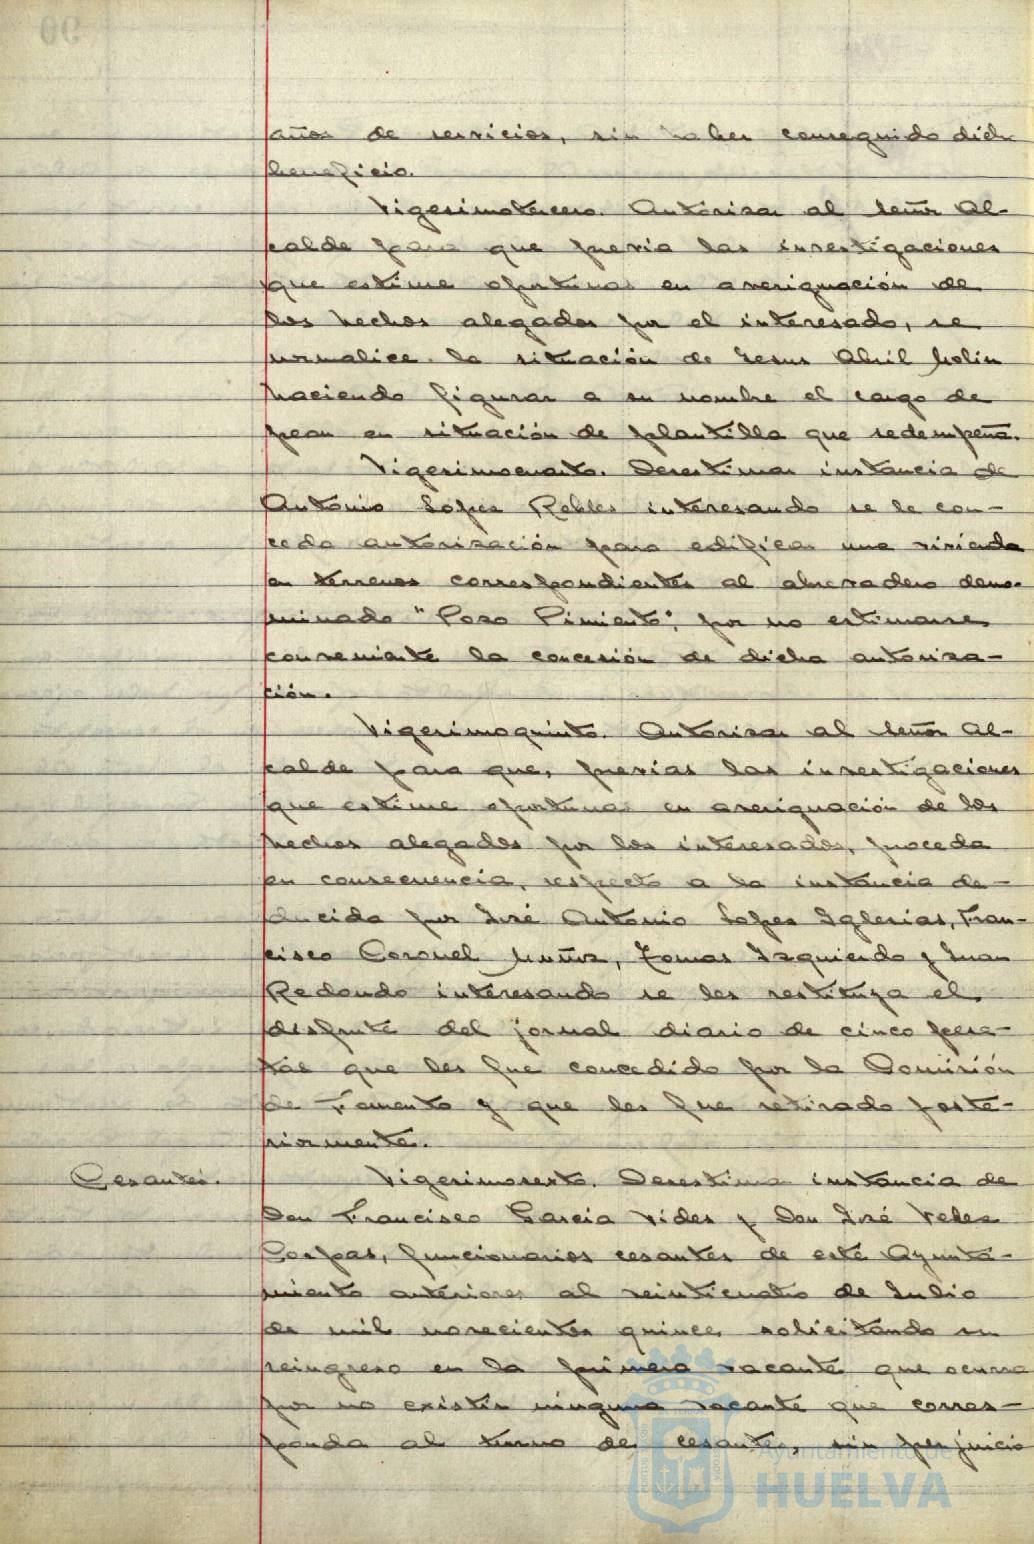 años de servicios, sin haber conseguido dicho
beneficio.
Vigesimotercero. Autorizar al Señor Al-
calde para que previa las investigaciones
que estime oportunas en averiguación de
los hechos alegados por el interesado, se
normalice la situación de Jesus Abril Molin
haciendo figurar a su nombre el cargo de
peon en situación de plantilla que sedempeña.
Vigesimocuarto. Desestimar instancia de
Antonio Lopez Robles interesando se le con-
ceda autorización para edificar una vivienda
en terrenos correspondientes al abrevadero deno-
minado "Pozo Pimiento", por no estimarse
conveniente la concesión de dicha autoriza-
ción.
Vigesimoquinto. Autorizar al Señor Al-
calde para que, previas las investigaciones
que estime oportunas en averiguación de los
hechos alegados por los interesados, proceda
en consecuencia, respecto a la instancia de-
ducida por José Antonio Lopez Iglesias, Fran-
cisco Coronel Muñoz, Tomas Izquierdo y Juan
Redondo interesando se les restituya el
disfrute del jornal diario de cinco pese-
tas que les fue concedido por la Comisión
de Fomento y que les fue retirado poste-
riormente.
Cesantes.
Vigesimosexto. Desestimar instancia de
Don Francisco Garcia Vides y Don José Velez
funcionarios cesantes de este Ayunta-
miento anteriores al veinticuatro de Julio
de mil novecientos quince, solicitando su
reingreso en la primera vacante que ocurra
por no existir ninguna vacante que corres-
ponda al turno de cesantes, sin perjuicio
Ayuntamiento de
HUELVA
90